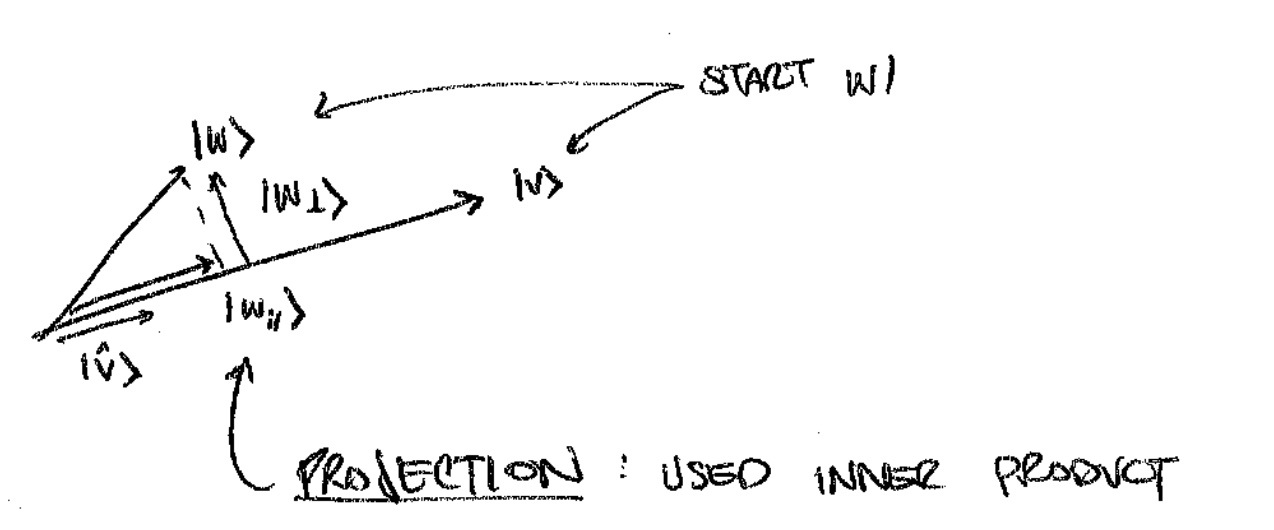 START W/
|W⟩
|W⊥⟩
|V⟩
|W∥⟩
|V̂⟩
PROJECTION : USED INNER PRODUCT